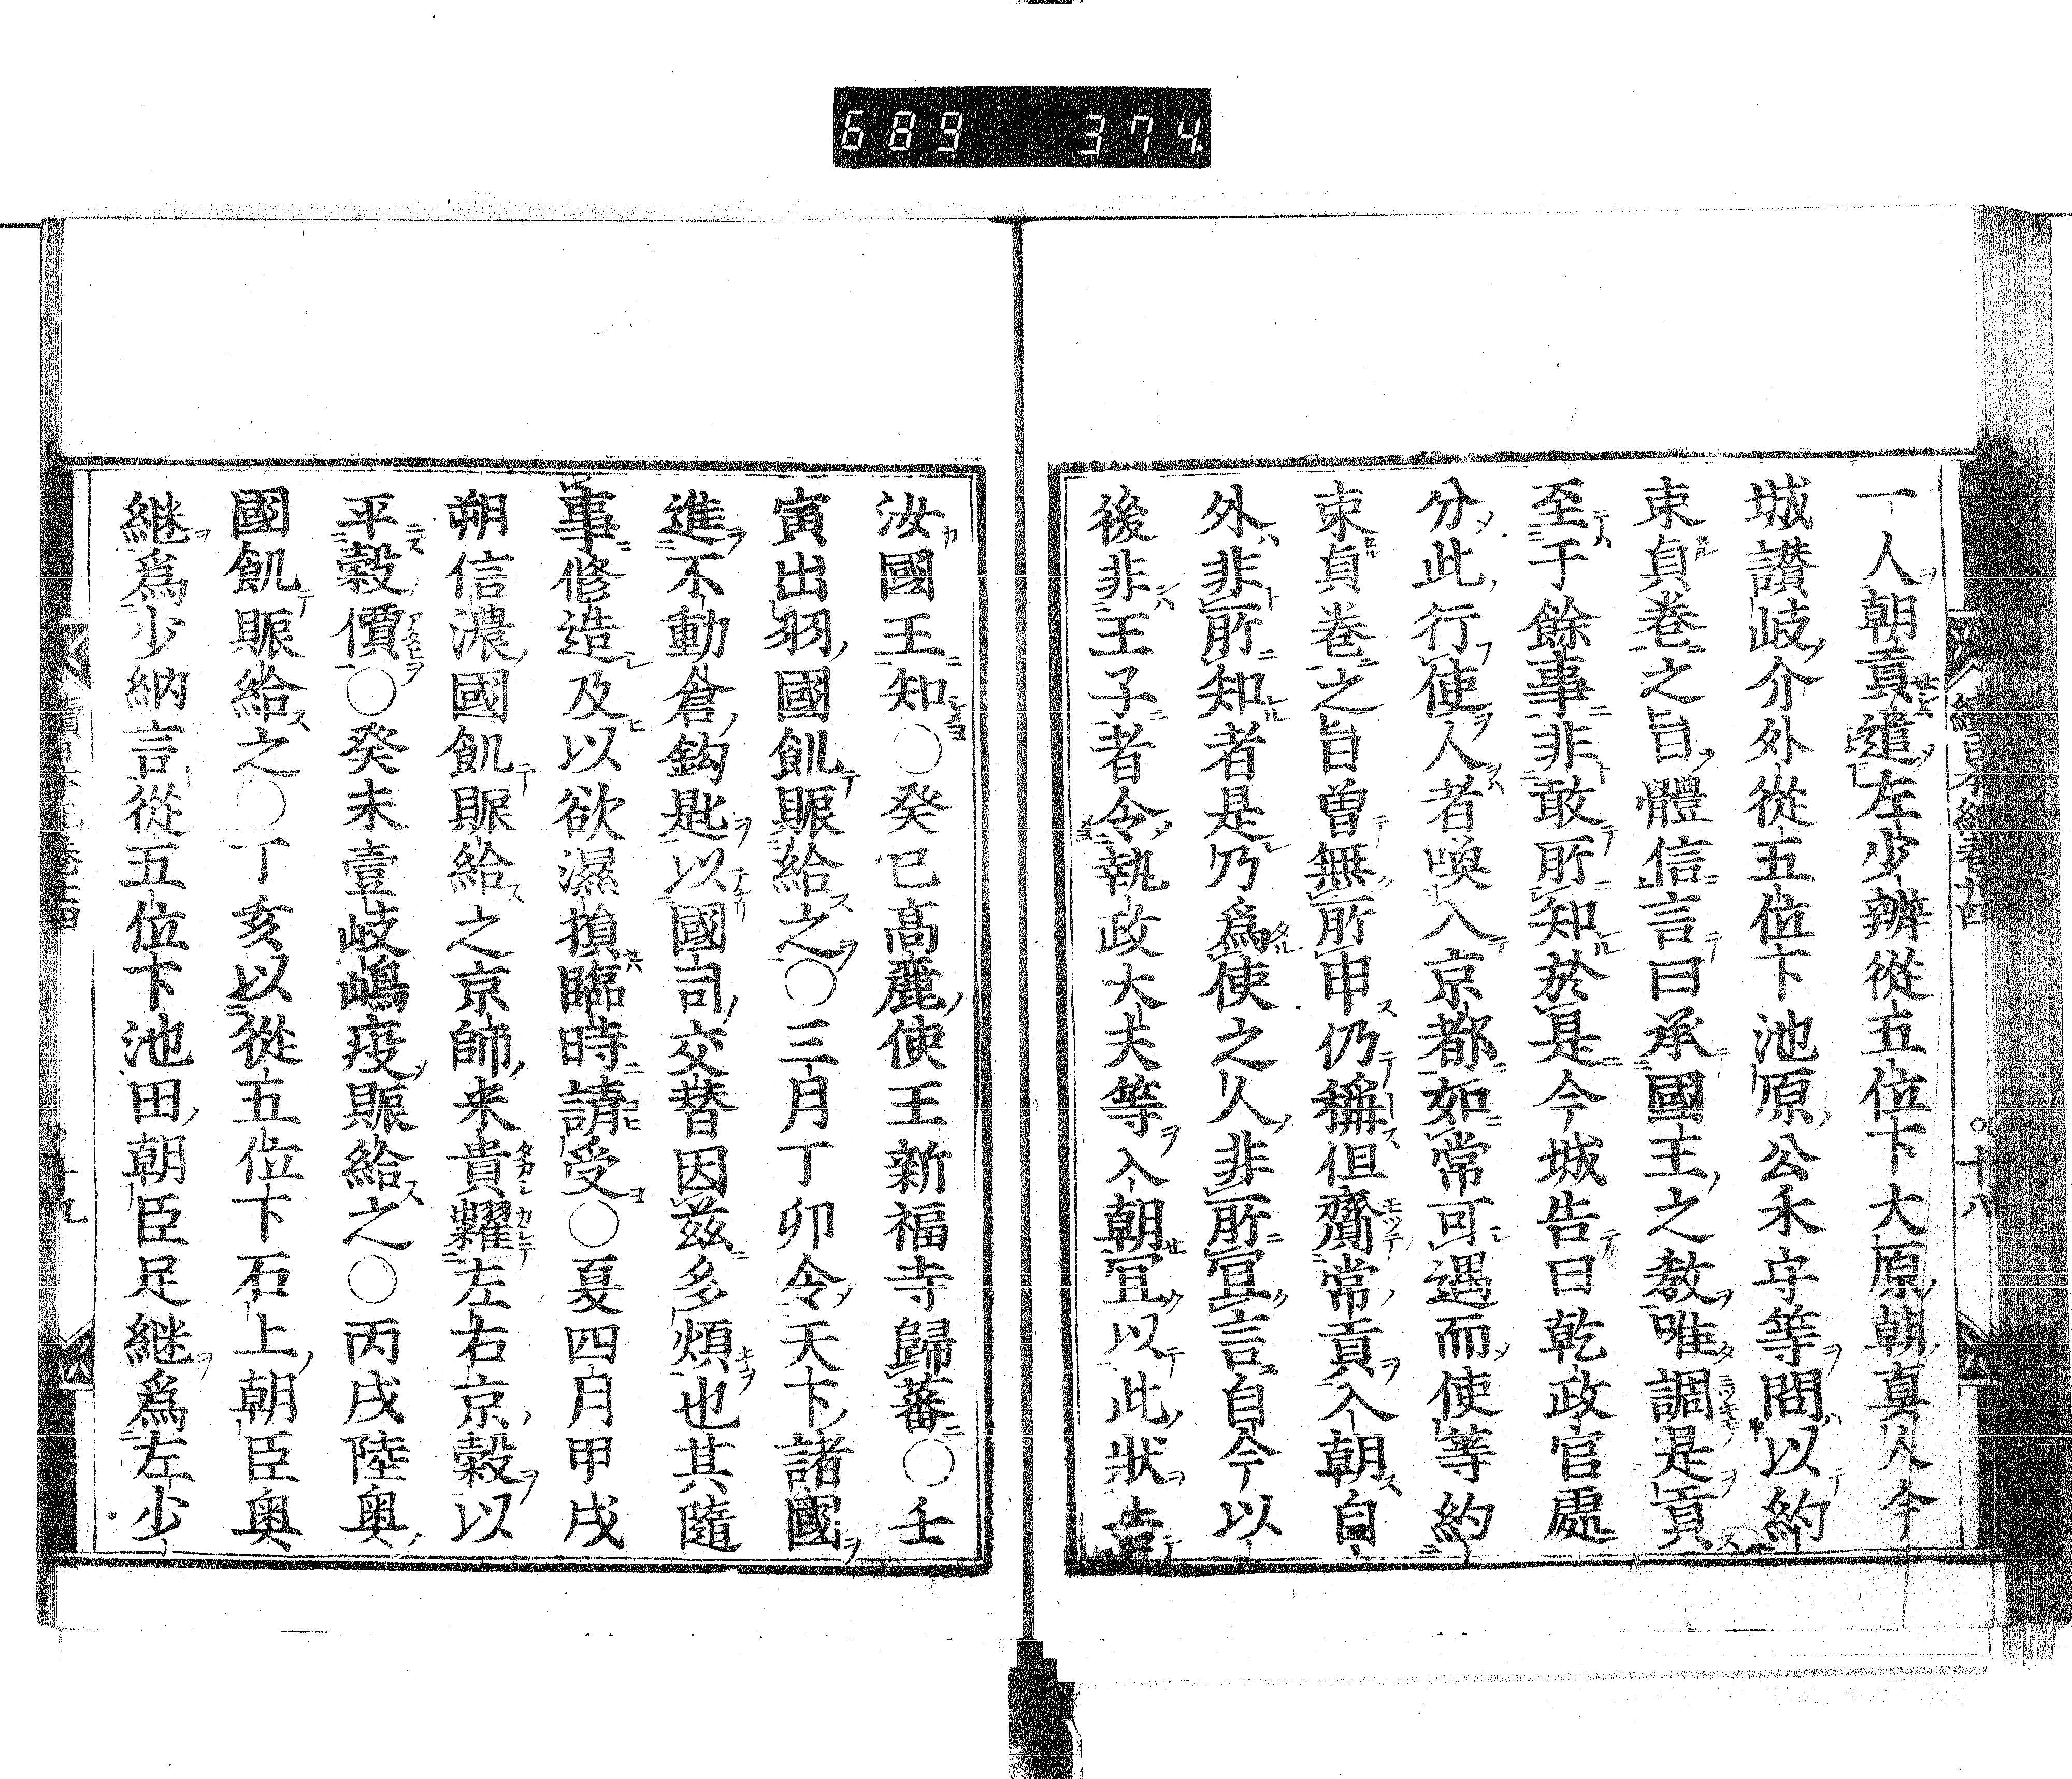 689 374.
一人朝貢遣左少辨從五位下大原朝真人今
城讃岐介外從五位下池原公禾守等問以約
束貞卷之旨體信言曰承國王之教唯調是貢
至于餘事非敢所知於是今城告曰乾政官處
分此行使人者喚入京都如常可遇而使等約
束貞卷之旨曽無所申仍稱但齎常貢入朝自
外非所知者是乃爲使之人非所宜言自今以
後非王子者令執政大夫等入朝宜以此狀告
汝國王知○癸巳高麗使王新福寺歸蕃○壬
寅出羽國飢賑給之○三月丁卯令天下諸國
進不動倉鈎匙以國司交替因茲多煩也其隨
事修造及以欲濕損臨時請受○夏四月甲戌
朔信濃國飢賑給之京師米貴糶左右京穀以
平穀價○癸未壹岐嶋疫賑給之○丙戌陸奥
國飢賑給之○丁亥以從五位下石上朝臣奥
継爲少納言從五位下池田朝臣足継爲左少
十八
十九